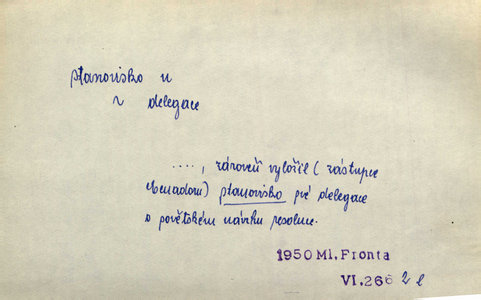 stanovisko n
2 delegace
...., zároveň vyložil (zástupce
Ekvadoru) stanovisko své delegace
o sovětském návrhu resoluce.
1950 Ml. Fronta
VI. 266 2 l